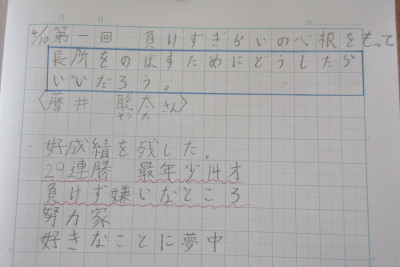 4/10 第一回 負けずぎらいの心根をもって
長所をのばすためにどうしたら
いいだろう。
〈藤井 聡太さん〉
そう た
好成績を残した。
29連勝 最年少14才
負けず嫌いなところ
努力家
好きなことに夢中